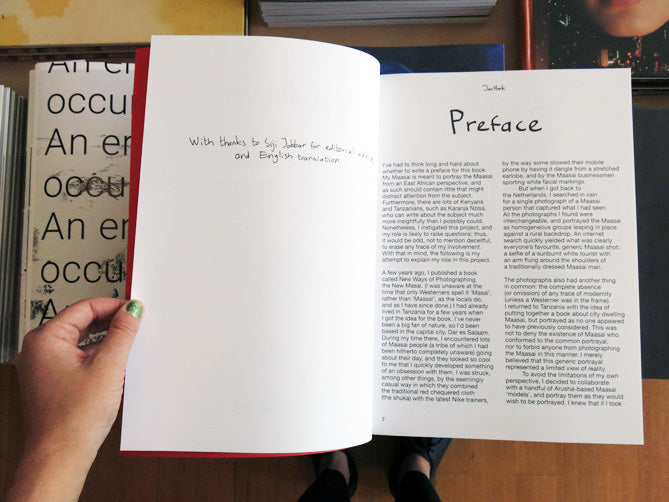 An er
occu
An er
occu
An er
occu
With thanks to Siji Jabbar for editorial
and English translation
Jan Hoek
Preface
I've had to think long and hard about
whether to write a preface for this book.
My Maasai is meant to portray the Maasai
from an East African perspective, and
as such should contain little that might
distract attention from the subject.
Furthermore, there are lots of Kenyans
and Tanzanians, such as Karanja Nzisa,
who can write about the subject much
more insightfully than I possibly could.
Nonetheless, I instigated this project, and
my role is likely to raise questions; thus,
it would be odd, not to mention deceitful,
to erase any trace of my involvement.
With that in mind, the following is my
attempt to explain my role in this project.
A few years ago, I published a book
called New Ways of Photographing
the New Masai. (I was unaware at the
time that only Westerners spell it 'Masai',
rather than 'Maasai', as the locals do,
and as I have since done.) I had already
lived in Tanzania for a few years when
I got the idea for the book. I've never
been a big fan of nature, so I'd been
based in the capital city, Dar es Salaam.
During my time there, I encountered lots
of Maasai people (a tribe of which I had
been hitherto completely unaware) going
about their day, and they looked so cool
to me that I quickly developed something
of an obsession with them. I was struck,
among other things, by the seemingly
casual way in which they combined
the traditional red chequered cloth
(the shuka) with the latest Nike trainers,
7
by the way some stowed their mobile
phone by having it dangle from a stretched
earlobe, and by the Maasai businessmen
sporting white facial markings.
But when I got back to
the Netherlands, I searched in vain
for a single photograph of a Maasai
person that captured what I had seen.
All the photographs I found were
interchangeable, and portrayed the Maasai
as homogeneous groups leaping in place
against a rural backdrop. An internet
search quickly yielded what was clearly
everyone's favourite, generic Maasai shot:
a selfie of a sunburnt white tourist with
an arm flung around the shoulders of
a traditionally dressed Maasai man.
The photographs also had another thing
in common: the complete absence
(or omission) of any trace of modernity
(unless a Westerner was in the frame).
I returned to Tanzania with the idea of
putting together a book about city dwelling
Maasai, but portrayed as no one appeared
to have previously considered. This was
not to deny the existence of Maasai who
conformed to the common portrayal,
nor to forbid anyone from photographing
the Maasai in this manner. I merely
believed that this generic portrayal
represented a limited view of reality.
To avoid the limitations of my own
perspective, I decided to collaborate
with a handful of Arusha-based Maasai
'models', and portray them as they would
wish to be portrayed. I knew that if I took